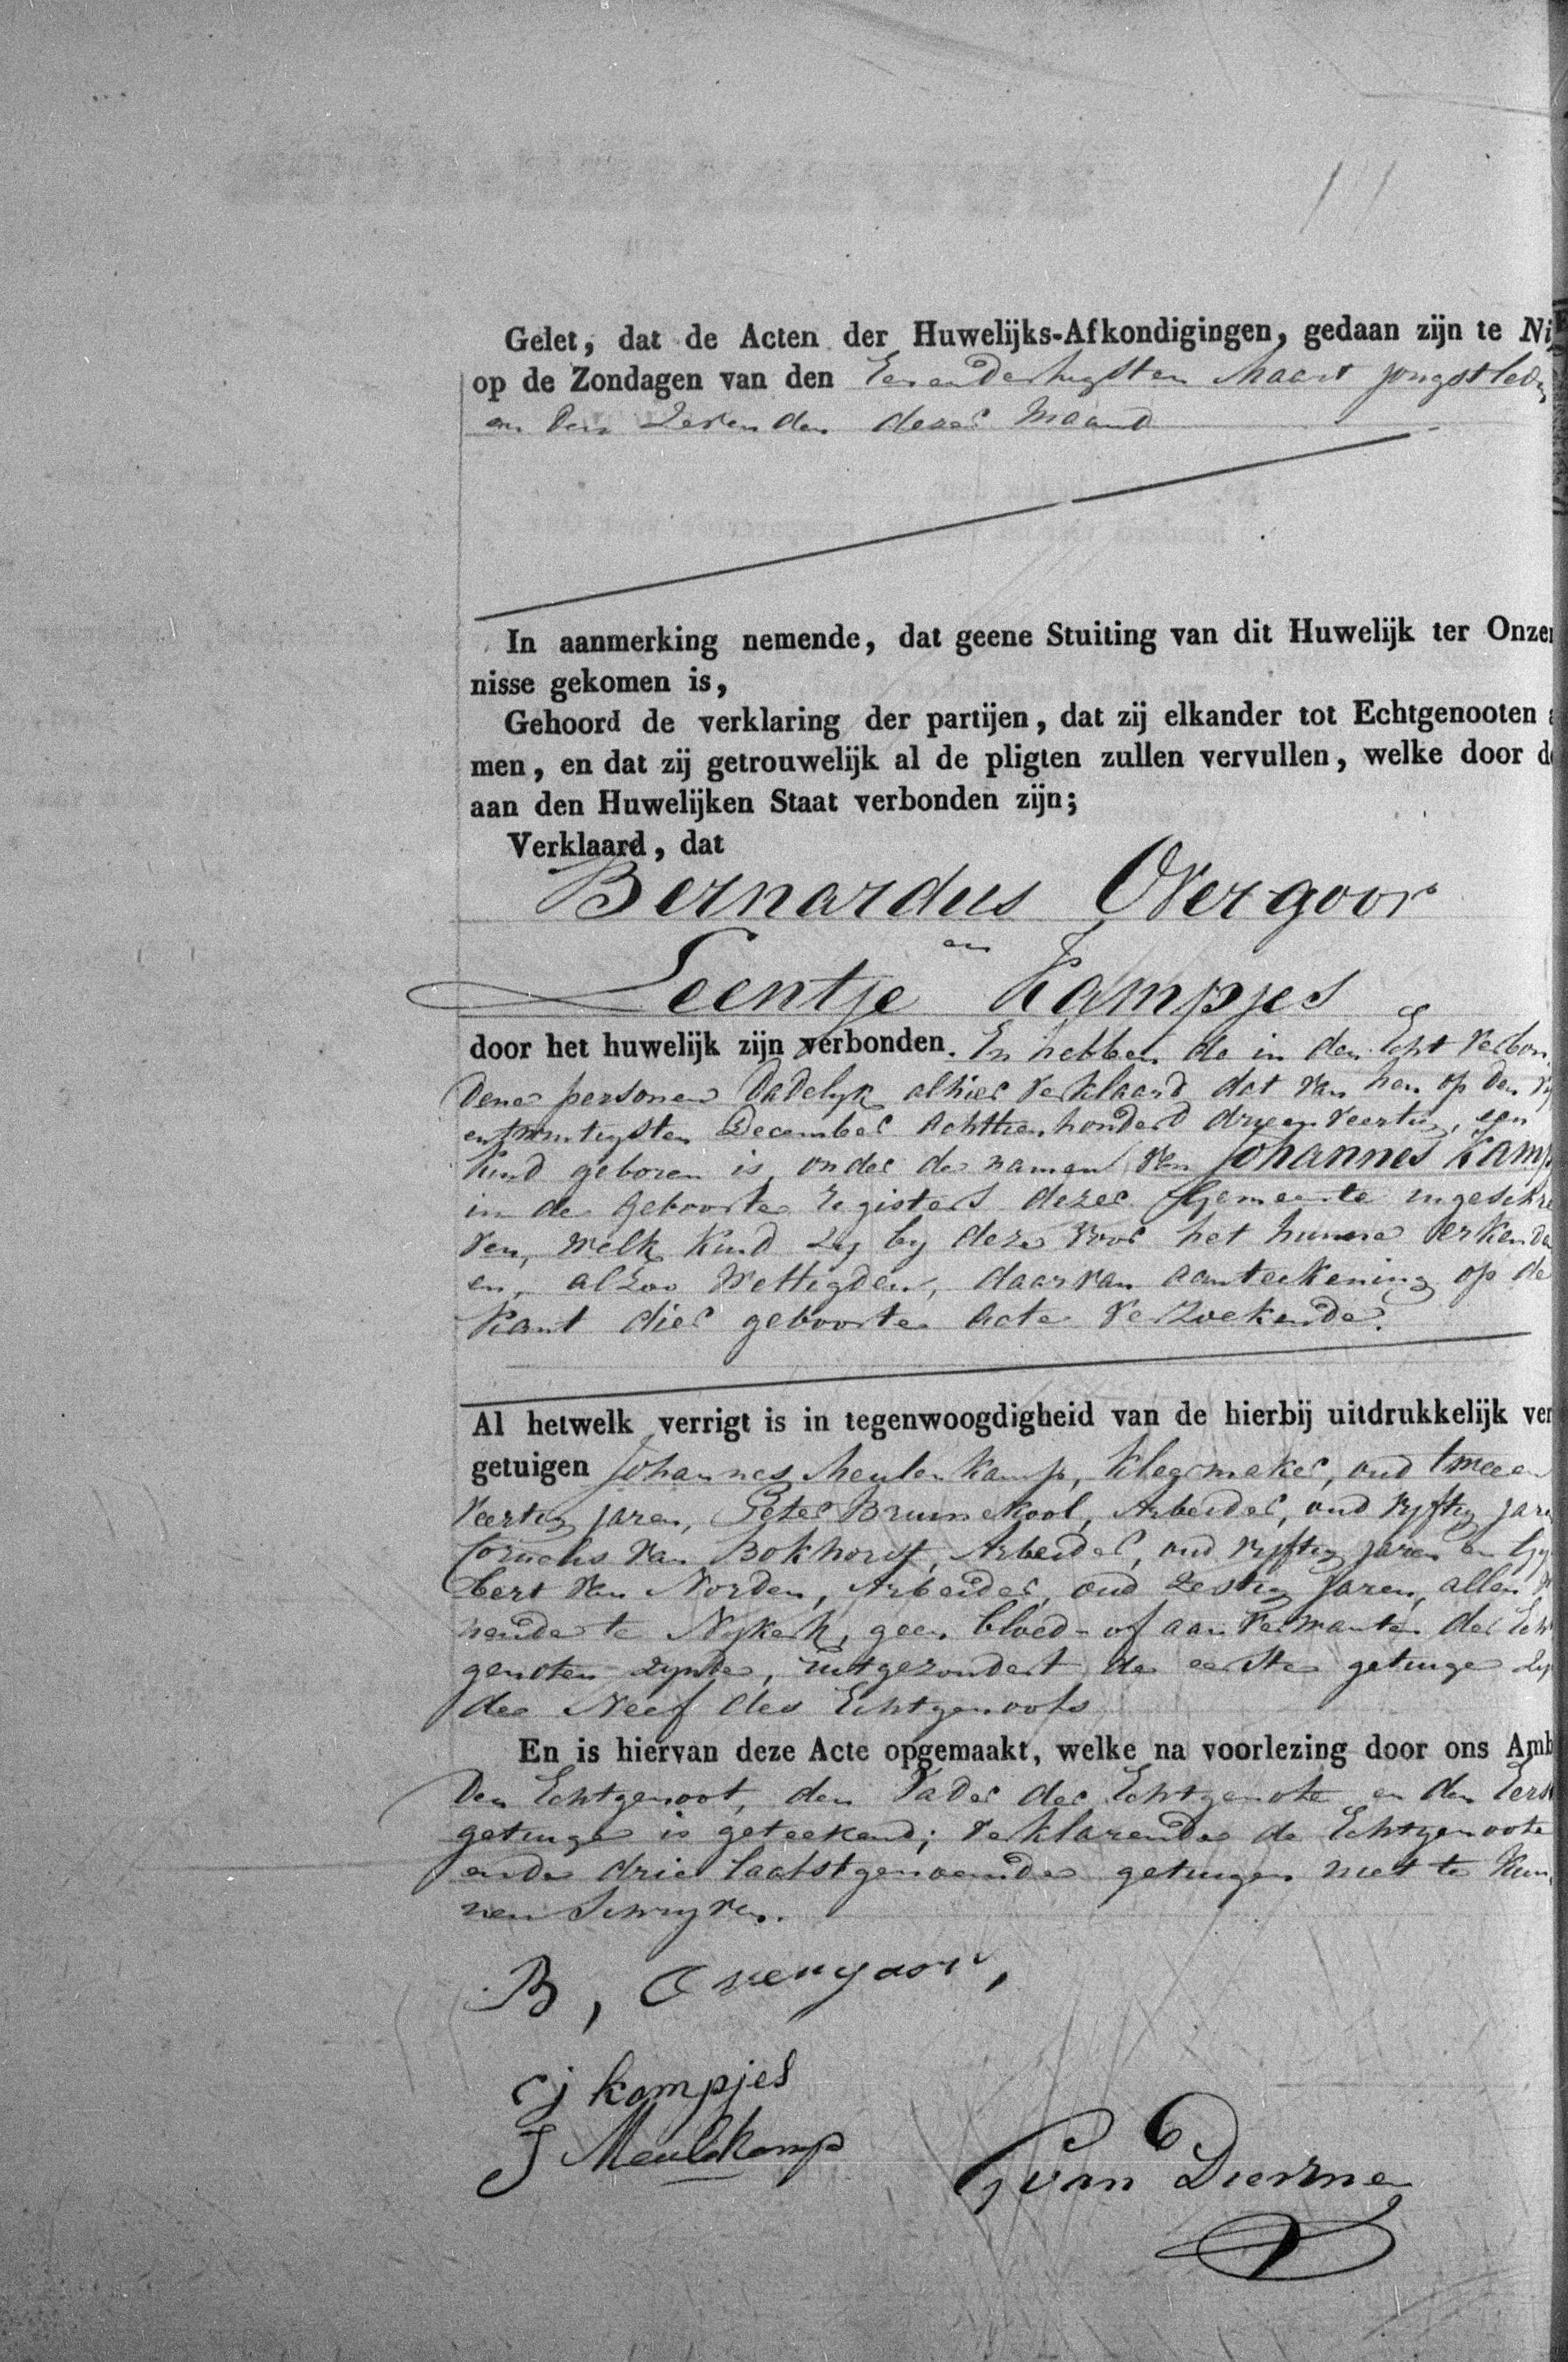 Gelet, dat de Acten der Huwelijks-Afkondigingen, gedaan zijn te Ni
op de Zondagen van den Eenendertigsten Maart jongstleden
en den Zevenden dezer Maand
In aanmerking nemende, dat geene Stuiting van dit Huwelijk ter Onzer
nisse gekomen is,
Gehoord de verklaring der partijen, dat zij elkander tot Echtgenooten a
men, en dat zij getrouwelijk al de pligten zullen vervullen, welke door de
aan den Huwelijken Staat verbonden zijn;
Verklaard, dat
Bernardus Overgoor
en
Leentje Kampjes
door het huwelijk zijn verbonden. En hebben de in den Echt verbon
dene personen dadelyk alhier verklaard dat van hen op den vy
entwintigsten December achttienhonderd drieenveertig, een
Kind geboren is, onder de namen van Johannes Kamp
in de geboorte registers dezer Gemeente ingeschre
ven, welk Kind zy by deze voor het hunne erkende
en, alzoo Wettigden, daarvan aanteekening op de
kant dier geboorte acte verzoekende.
Al hetwelk verrigt is in tegenwoogdigheid van de hierbij uitdrukkelijk ver
getuigen Johannes Meulenkamp, Kleermaker, oud tweeen
veertig jaren, Peter Bruinekool, Arbeider, oud vyftig jare
Cornelis van Bokhorst, Arbeider, oud vyftig jaren en Gys
bert van Norden, Arbeider, oud zestig jaren, allen w
nende te Nykerk, geen bloed- of aanverwanten der Echt
genoten zynde, uitgezondert de eerste getuige zyn
de Neef des Echtgenoots
En is hiervan deze Acte opgemaakt, welke na voorlezing door ons Amb
den Echtgenoot, den Vader der Echtgenote en den Eerst
getuige is geteekend; verklarende de Echtgenoote
en de drie laatstgenoemde getuigen niet te kun
nen Schryven.
B, Overgoor,
C j kampjes
J Meulekamp
G van Dierme